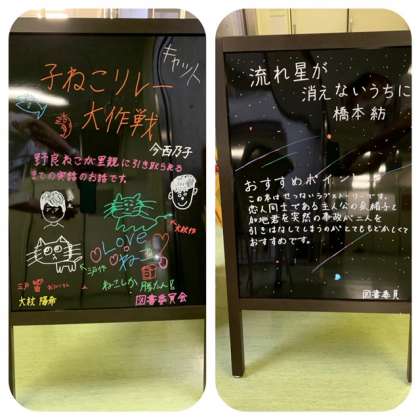 キャット
子ねこリレー
大作戦
今西乃子
野良ねこが里親に引き取られる
までの実話のお話です。
LOVE
ねこ
ねこしか勝たん!
図書委員会
流れ星が
消えないうちに
橋本 紡
おすすめポイント
この本はせつないラブストーリーです。
恋人同士である主人公の奈緒子と
加地君を突然の事故が二人を
引きはなしてしまうのがとてももどかしくて
おすすめです。
図書委員